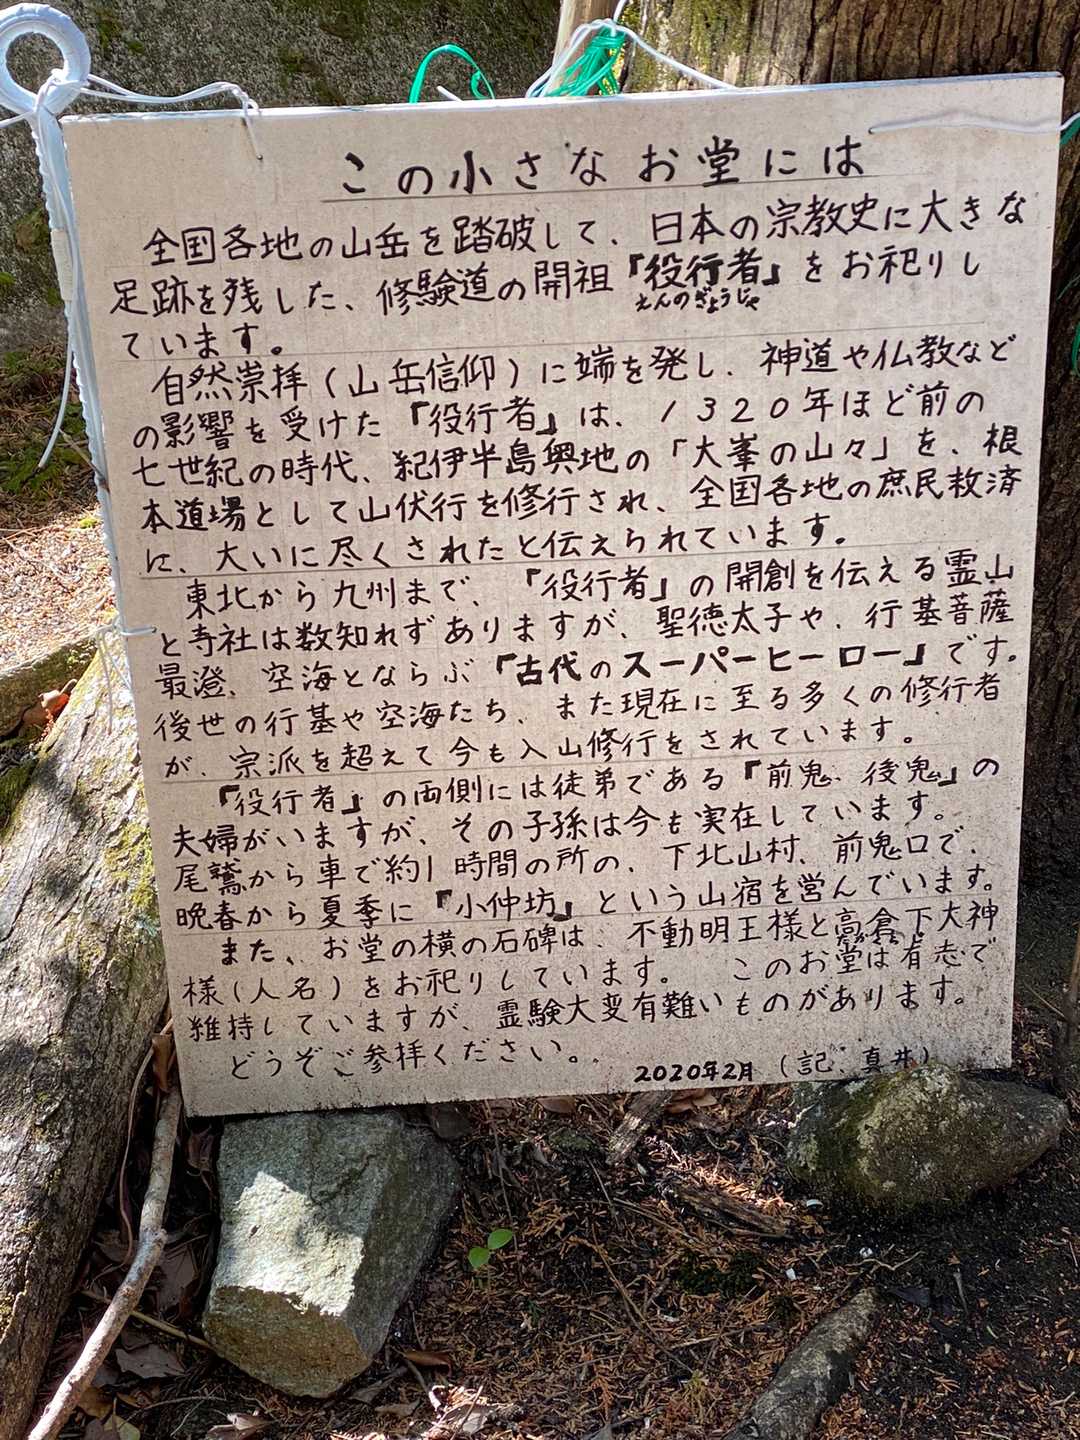 この小さなお堂には
全国各地の山岳を踏破して、日本の宗教史に大きな
足跡を残した、修験道の開祖『役行者』をお祀りし
えんのぎょうじゃ
ています。
自然崇拝(山岳信仰)に端を発し、神道や仏教など
の影響を受けた『役行者』は、1320年ほど前の
七世紀の時代、紀伊半島奥地の「大峯の山々」を、根
本道場として山伏行を修行され、全国各地の庶民救済
に、大いに尽くされたと伝えられています。
東北から九州まで、『役行者』の開創を伝える霊山
と寺社は数知れずありますが、聖徳太子や、行基菩薩
最澄、空海とならぶ『古代のスーパーヒーロー』です。
後世の行基や空海たち、また現在に至る多くの修行者
が、宗派を超えて今も入山修行をされています。
『役行者』の両側には徒弟である『前鬼、後鬼』の
夫婦がいますが、その子孫は今も実在しています。
尾鷲から車で約1時間の所の、下北山村、前鬼口で、
晩春から夏季に『小仲坊』という山宿を営んでいます。
また、お堂の横の石碑は、不動明王様と高倉下大神
様(人名)をお祀りしています。 このお堂は有志で
維持していますが、霊験大変有難いものがあります。
どうぞご参拝ください。
2020年2月 (記、真井)